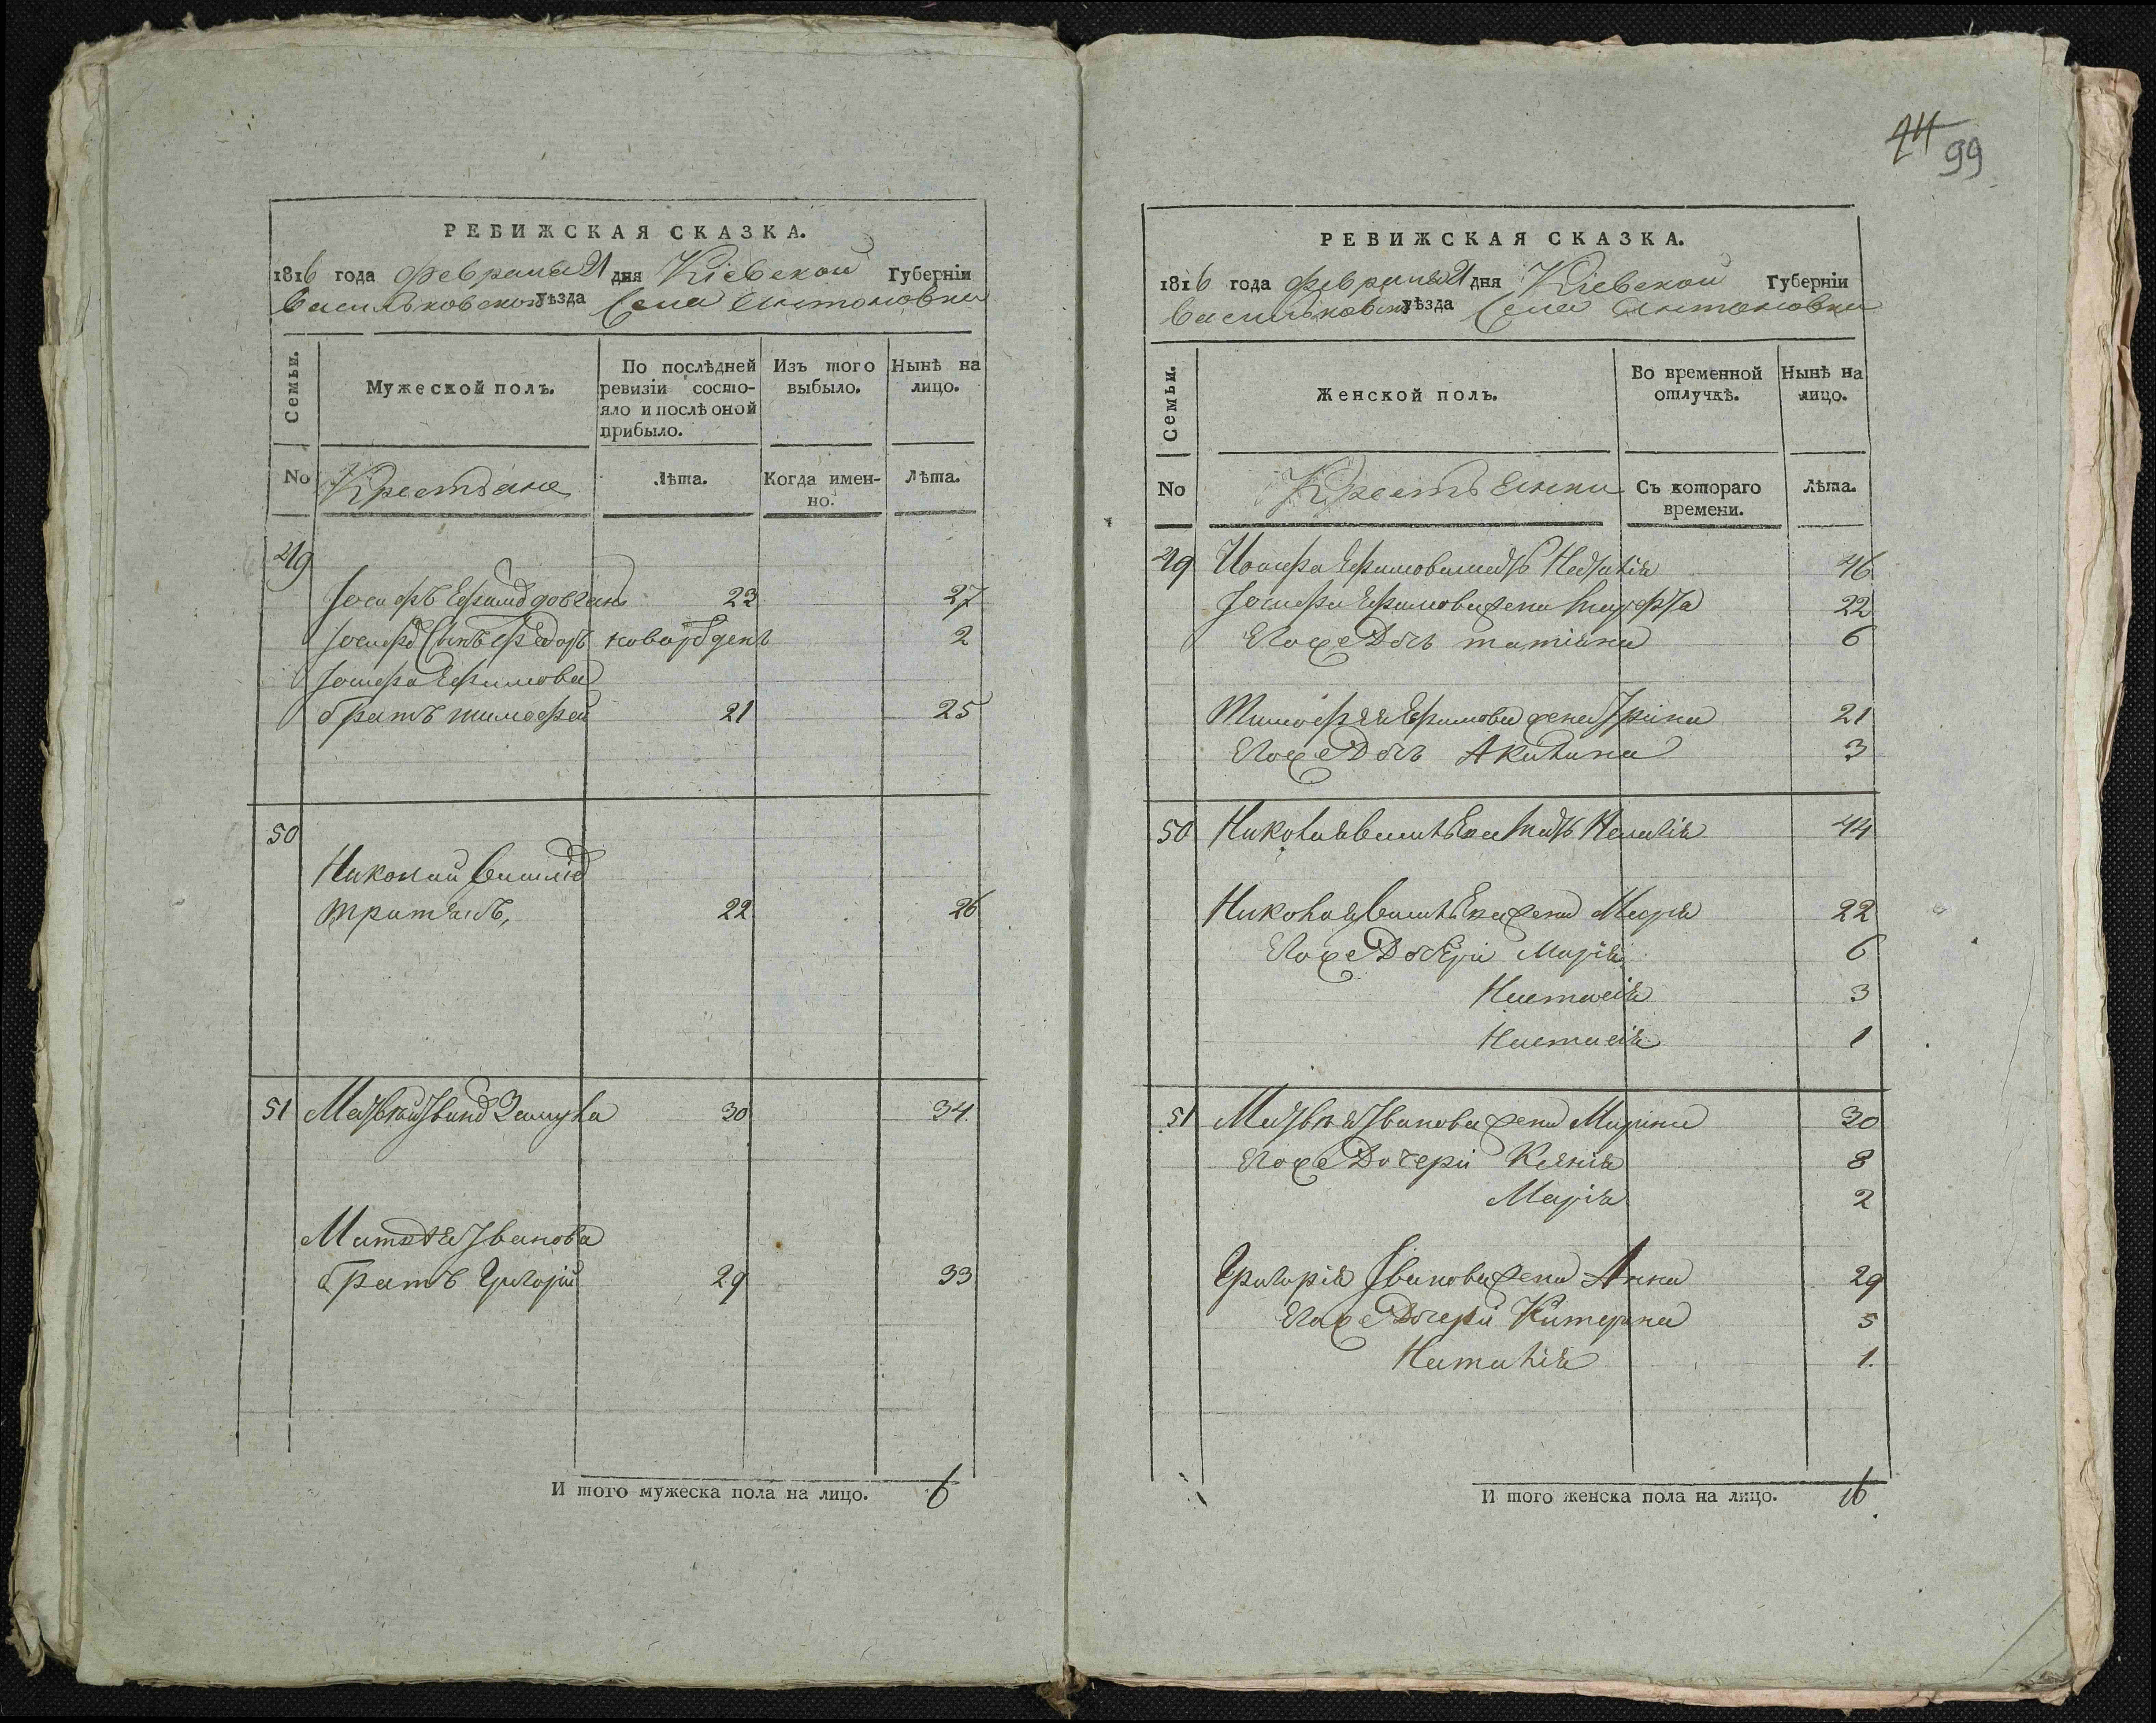 РЕВИЖСКАЯ СКАЗКА.
1816 года Февраля 21 дня Кіевской Губерніи
Васильковского уѣзда Села Антоновки
Семьи.
Мужеской полъ.
По послѣдней ревизіи состо-
яло и послѣ оной прибыло.
Изъ того выбыло.
Нынѣ на лицо.
No
Крестьяне
Лѣта.
Когда имен-
но.
Лѣта.
49
Іосифъ Ефимовъ довгань 23 27
Іосифа Сынъ Федоръ новорожденъ 2
Іосифа Ефимова
братъ тимофей 21 25
50
Николай
22 26
51 Матвѣй Ивановъ 30 34
Матвѣя Иванова
братъ Григорій 29 33
И того мужеска пола на лицо. 6
24
99
РЕВИЖСКАЯ СКАЗКА.
1816 года Февраля 21 дня Кіевской Губерніи
Васильковского уѣзда Села Антоновки
Семьи.
Женской полъ.
Во временной отлучкѣ.
Нынѣ на лицо.
No
Крестьянки
Съ котораго времени.
Лѣта.
49 Іосифа Ефимова мать 46
Іосифа Ефимова жена Марфа 22
Егоже Дочь татіана 6
Тимофея Ефимова жена Ірина 21
Егоже Дочь Акилина 3
50 Николая мать 44
Николая жена Марія 22
Егоже Дочери Марія 6
Настасія 3
Настасія 1
51 Матвѣя Иванова жена Марина 30
Егоже Дочери Ксенія 8
Марія 2
Григорія Иванова жена Анна 29
Егоже Дочери Катерина 5
Наталія 1.
И того женска пола на лицо. 16